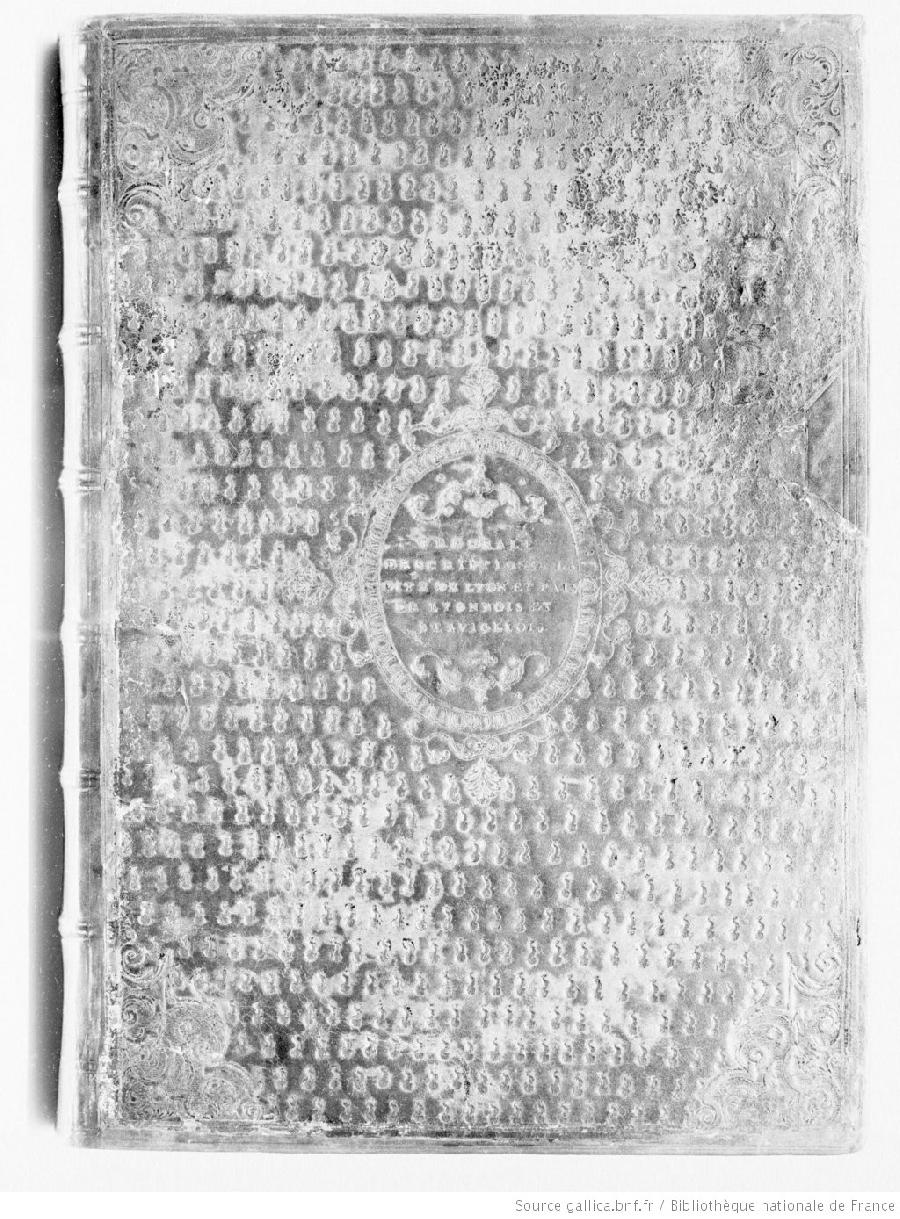 GENERALE
DESCRIPTION DE LA
VILLE DE LYON ET PAIS
DE LYONNOIS ET
BEAVIOLLOIS
Source gallica.bnf.fr / Bibliothèque nationale de France